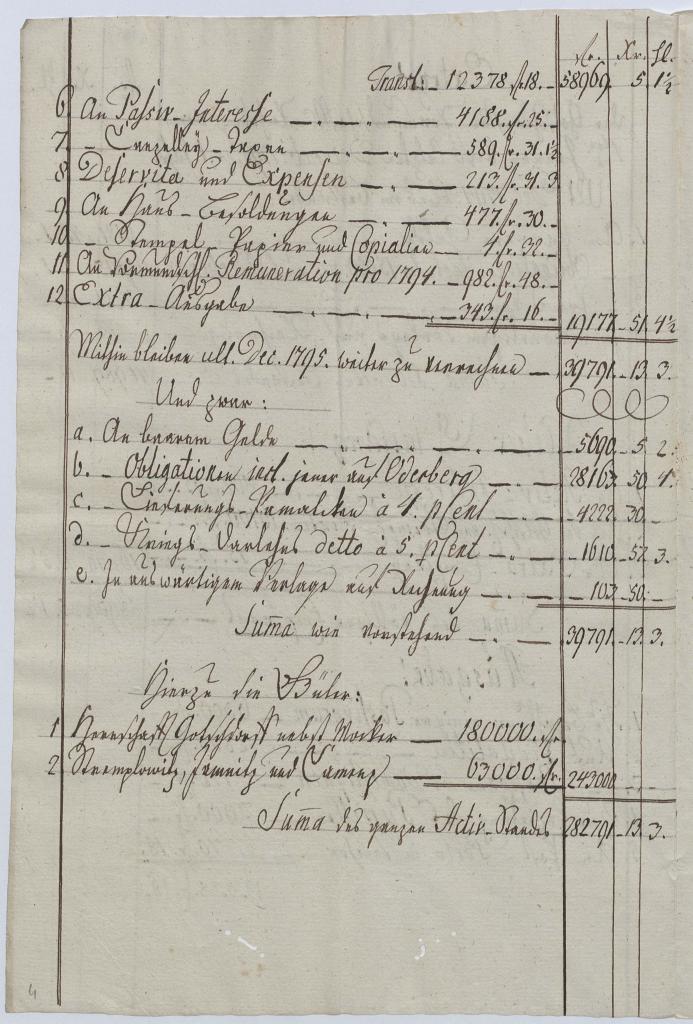 fr. Xr. hl.
Transt: – 12378. fr. 18. – 58969. 5. 1½
6 An Passiv-Interesse — 4188. fr. 25. –
7. – Canzelley-Taxen — 589. fr. 31. 1½
8 Deservita und Expensen — 213. fr. 31. 3
9 An Haus-Besoldungen — 477. fr. 30. –
10 – Stempel-Papier und Copialien — 4. fr. 32. –
11 An Vormundschl. Remuneration pro 1794. – 982. fr. 48. –
12 Extra-Ausgabe — 343. fr. 16. – 19177. – 51. 4½
Mithin bleiben ult. Dec. 1795. weiter zu verrechnen — 39791. – 13. 3.
Und zwar:
a. An baarem Gelde — 5690. – 5. 2.
b. – Obligationen incl. jener auf Oderberg — 28163. 50. 4.
c. – Lieferungs- à 4. pCent — 4222. 30. –
d. – Kriegs-Darlehns detto à 5. pCent — 1610. – 52. 3.
e. In auswärtigem Verlage auf Rechnung — 103. 50. –
Suma wie vorstehend — 39791. – 13. 3.
Hierzu die Güter:
1 Herrschaft Gotschdorff nebst Mocker — 180000. fr.
2 Stremplowitz, Jamnitz und Camenz — 63000. fr. 243000 – –
Suma des ganzen Activ-Standes 282791. – 13. 3.
4